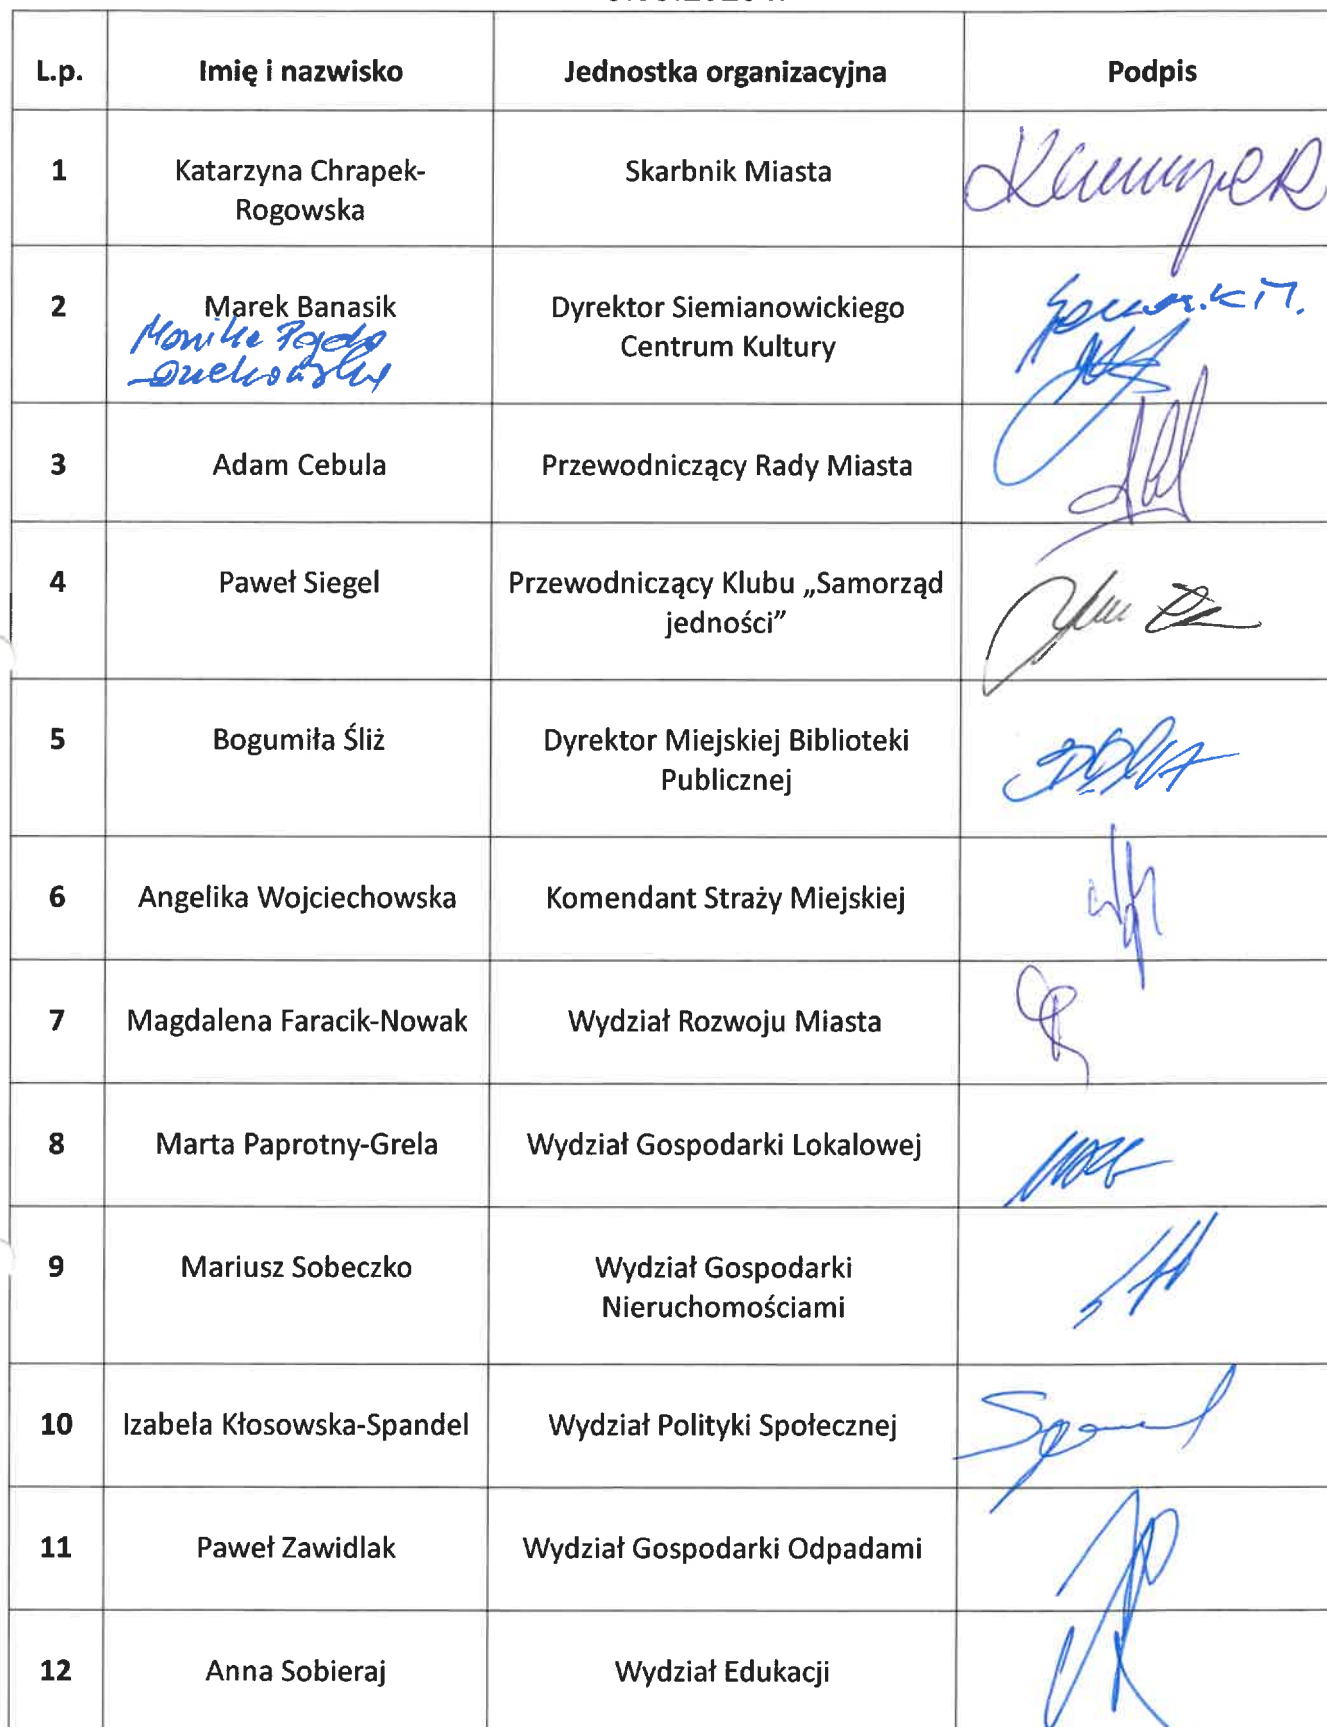 L.p. Imię i nazwisko Jednostka organizacyjna Podpis
1 Katarzyna Chrapek- Skarbnik Miasta
Rogowska
2 Marek Banasik Dyrektor Siemianowickiego
Centrum Kultury
Monika
3 Adam Cebula Przewodniczący Rady Miasta
4 Paweł Siegel Przewodniczący Klubu „Samorząd
jedności”
5 Bogumiła Śliż Dyrektor Miejskiej Biblioteki
Publicznej
6 Angelika Wojciechowska Komendant Straży Miejskiej
7 Magdalena Faracik-Nowak Wydział Rozwoju Miasta
8 Marta Paprotny-Grela Wydział Gospodarki Lokalowej
9 Mariusz Sobeczko Wydział Gospodarki
Nieruchomościami
10 Izabela Kłosowska-Spandel Wydział Polityki Społecznej
11 Paweł Zawidlak Wydział Gospodarki Odpadami
12 Anna Sobieraj Wydział Edukacji